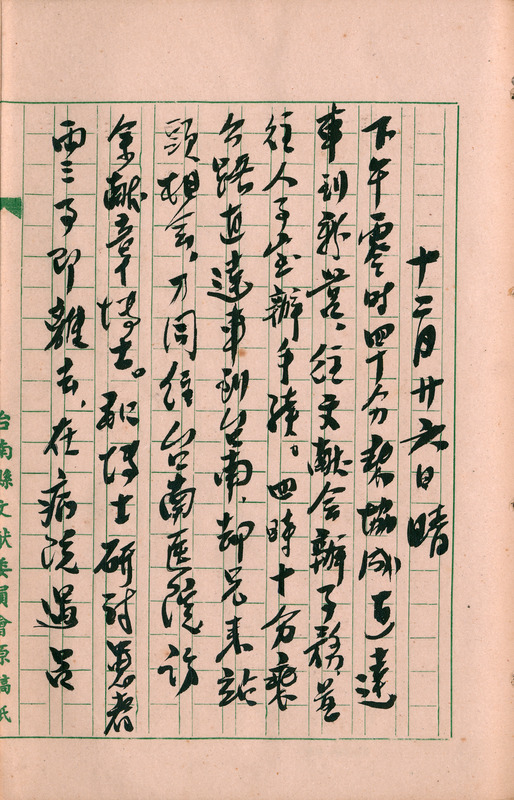 十二月廿六日晴
下午零时四十分乘協成直達
車到新营、往文献会辦事務、並
往人事室辦手續。四時十分乘
公路直達車到台南、却兄来站
頭相會、才同往台南医院訪
余献章博士。和博士研討患者
兩三事即離去、在病院遇呂
台南縣文献委員會原稿紙